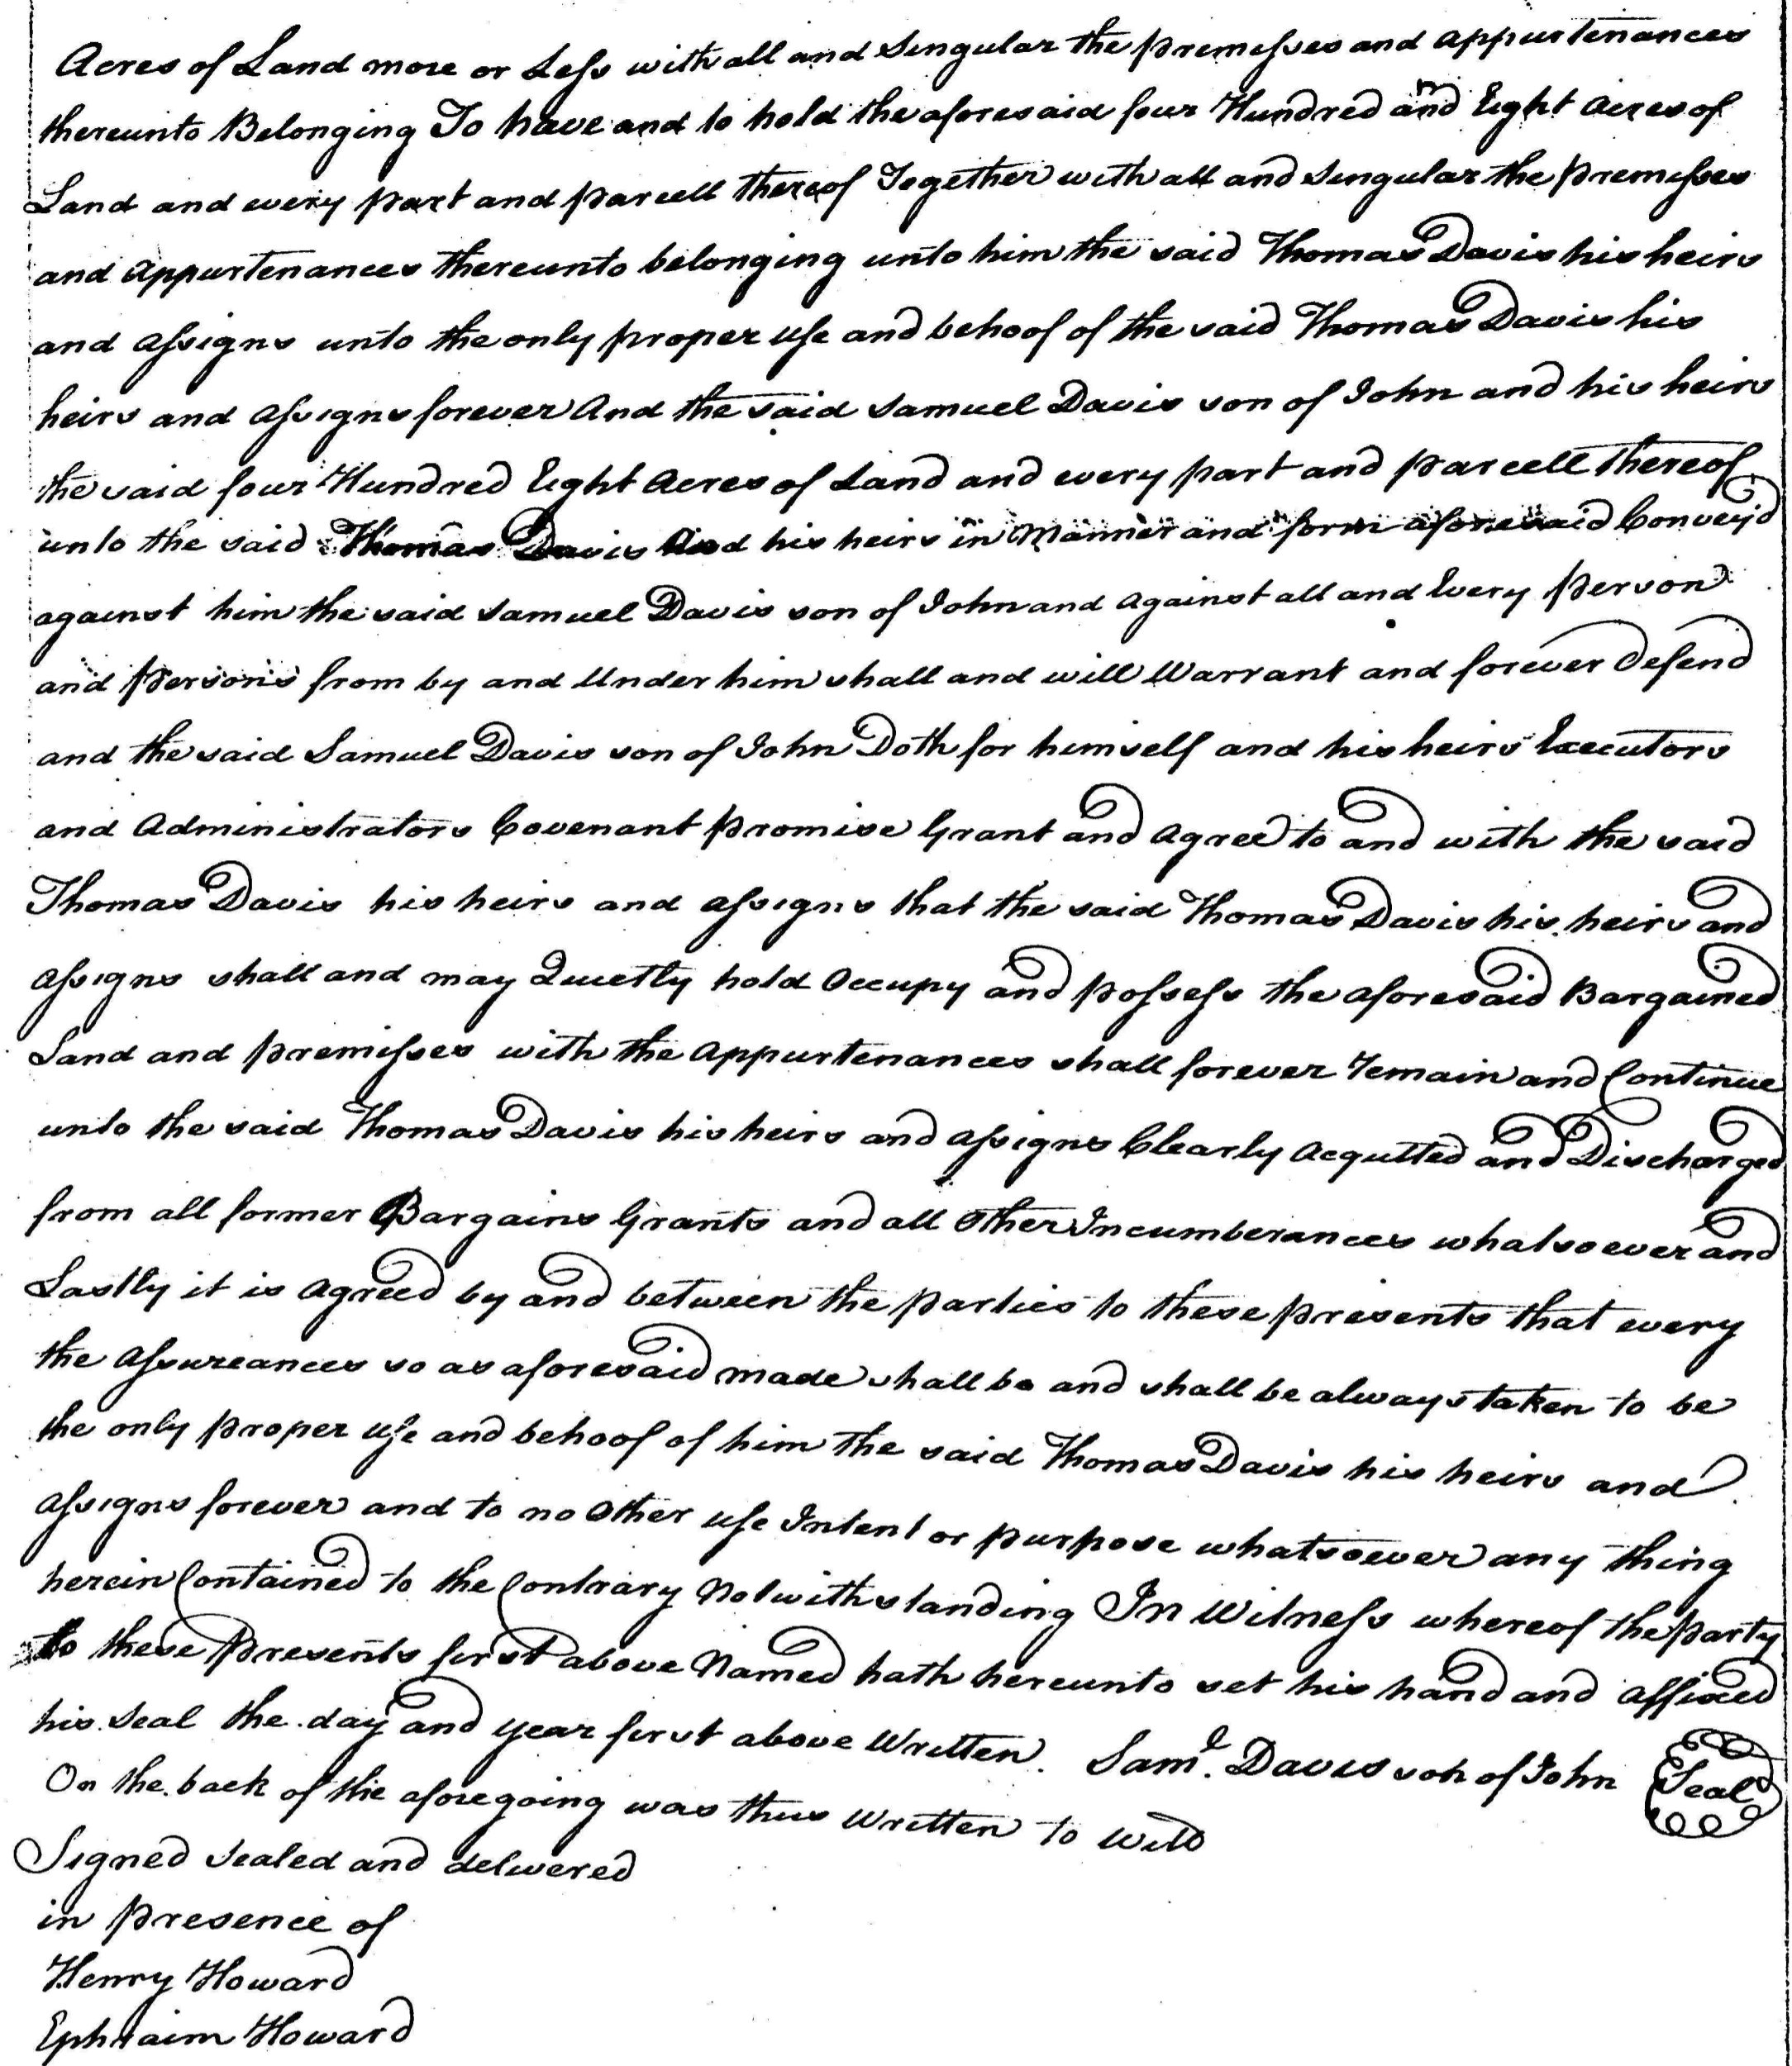 Acres of Land more or Less with all and Singular the premisses and appurtenances
thereunto Belonging To have and to hold the aforesaid four Hundred and Eight Acres of
Land and every part and parcell thereof Together with all and Singular the premisses
and Appurtenances thereunto belonging unto him the said Thomas Davis his heirs
and assigns unto the only proper use and behoof of the said Thomas Davis his
heirs and assigns forever And the said Samuel Davis son of John and his heirs
the said four Hundred Eight Acres of Land and every part and parcell thereof
unto the said Thomas Davis And his heirs in Manner and form aforesaid Convey'd
against him the said Samuel Davis son of John and against all and Every person
and persons from by and Under him shall and will Warrant and forever Defend
and the said Samuel Davis son of John Doth for himself and his heirs Executors
and Administrators Covenant promise Grant and agree to and with the said
Thomas Davis his heirs and assigns that the said Thomas Davis his heirs and
assigns shall and may Quietly hold Occupy and possess the aforesaid Bargained
Land and premisses with the Appurtenances shall forever remain and Continue
unto the said Thomas Davis his heirs and assigns Clearly Acqutted and Discharged
from all former Bargains Grants and all Other Incumberances whatsoever and
Lastly it is Agreed by and between the parties to these presents that every
the assureances so as aforesaid made shall be and shall be always taken to be
the only proper use and behoof of him the said Thomas Davis his heirs and
assigns forever and to no Other use Intent or purpose whatsoever any thing
herein Contained to the Contrary Notwithstanding In Witness whereof the party
to these presents first above Named hath hereunto set his hand and affixed
his Seal the day and year first above Written. Saml. Davis son of John Seal
On the back of the aforegoing was thus Written to Witt
Signed Sealed and delivered
in presence of
Henry Howard
Ephraim Howard